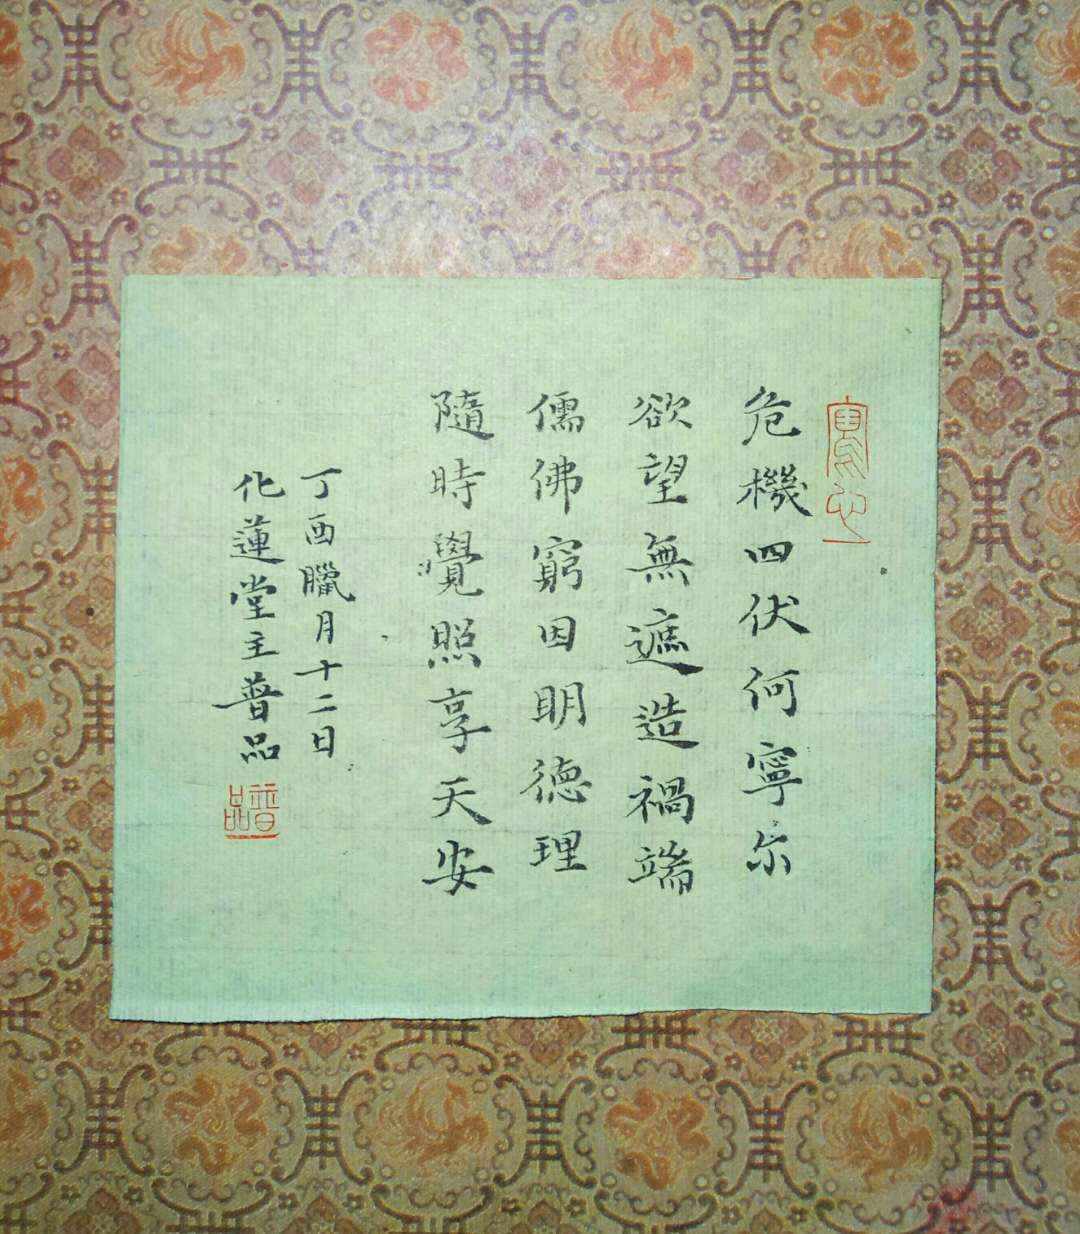 危機四伏何寧尔
欲望無遮造禍端
儒佛窮因明德理
隨時覺照享天安
丁酉臘月十二日
化蓮堂主普品
普品